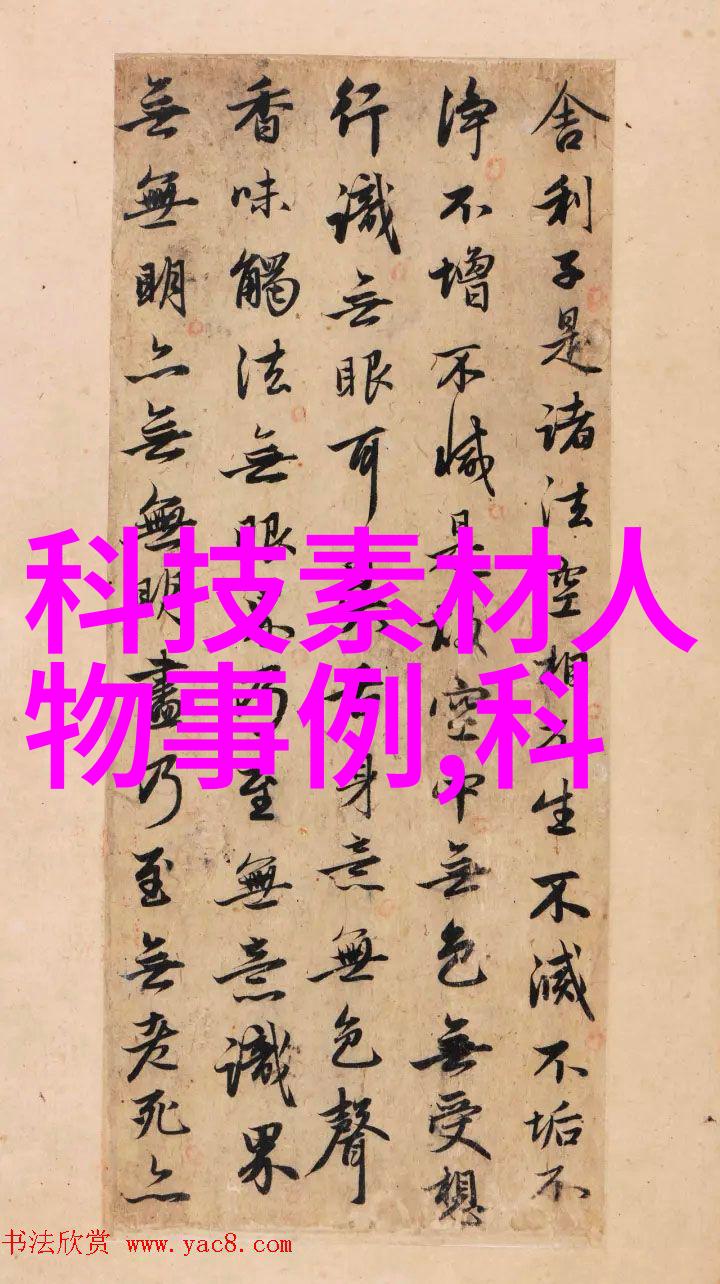 舍利子是諸法空相不生不滅不垢不
淨不增不減是故空中無色無受想
行識無眼耳鼻舌身意無色聲
香味觸法無眼界乃至無意識界
無無明亦無無明盡乃至無老死亦
科技素材人
物事例,科
书法欣赏 www.yac8.com